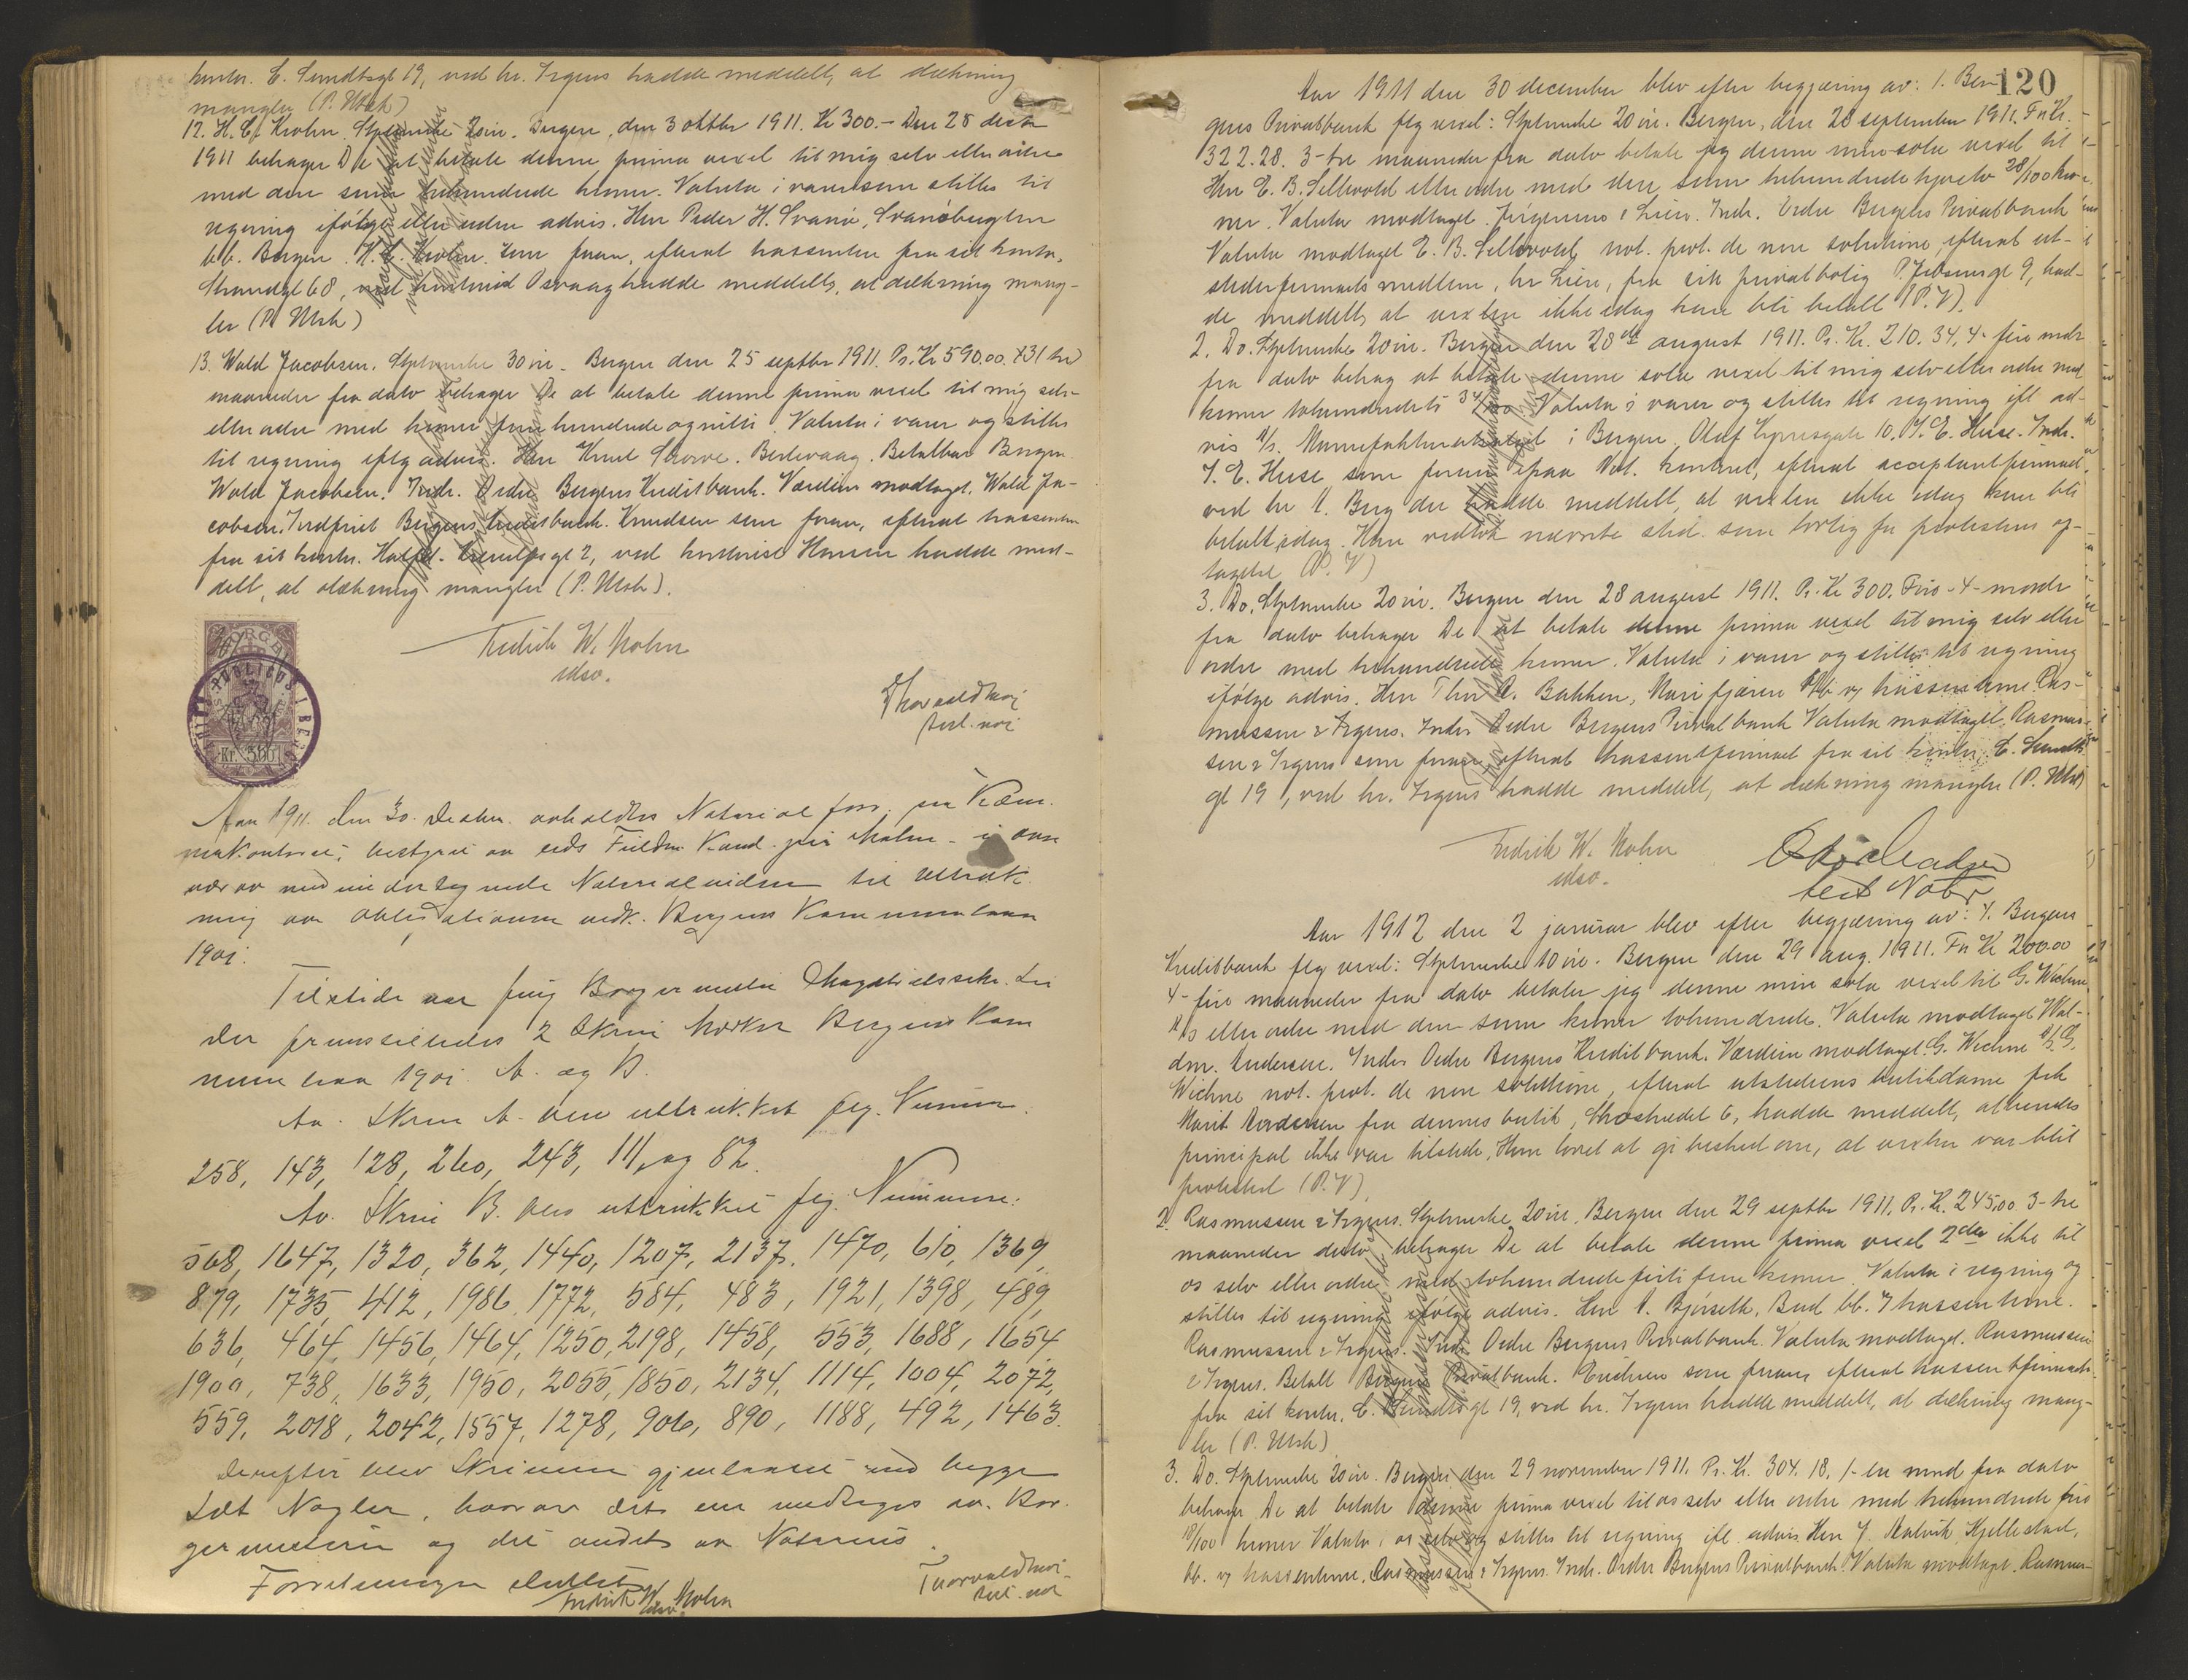 kontor. C. Sundtsgt 19, ved hr. Irgens hadde meddelt, at dækning
mangler (P. Utsk)
12. H. C. Krohn. Stplmrke 20 øre. Bergen, den 3 oktbr 1911. Kr 300.- Den 28 decbr
1911 behager De at betale denne prima vexel til mig selv eller ordre
med den sum trehundrede kroner. Valuta i varer som stilles til
regning ifølge eller uden advis. Herr Peder H. Svanø, Svanøbugten
bb. Bergen. H. C. Krohn som foran, efterat trassenten fra sit kontor,
Strandgt 68, ved kontorist Osvaag hadde meddelt, at dækning mang-
ler (P. Utsk)
13. Wald Jacobsen. Stplmrke 30 øre. Bergen den 25 septbr 1911. Pr. Kr 590.00. 3 (tre)
maaneder fra dato behager De at betale denne prima vexel til mig selv
eller ordre med kroner fem hundrede og nitti. Valuta i varer og stilles
til regning iflg advis. Herr Knut Storve. Berlevaag. Betalbar Bergen
Wald Jacobsen. Indr. Ordre Bergens Kreditbank. Værdien modtaget. Wald Ja-
cobsen. Indfriet Bergens Kreditbank. Knudsen som foran, efterat trassenten
fra sit kontor. Hatfd. gt 2, ved kontorist Hansen hadde med-
delt, at dækning mangler (P. Utsk).
Fredrik W. Mohn
edsv.
Thorvald Moi
test. not
NOTARIUS PUBLICUS I BERGEN
Kr. 3.00
Aar 1911. den 30. Decbr. avholdtes Notarialforr. paa Kæm-
nerkontoret; bestyret av eds Fuldm. Kand. jur. Mohn - i over
vær av medundertegnede Notarialvidne til Uttræk-
ning av Obligationer vedk. Bergens Kommunelaan
1901.
Tilstede var fung Borgermester Magistratssekr. Lie
Der fremstilledes 2 Skrin Mærket Bergens Kom
munelaan 1901. A. og B.
Av. Skrin A. blev uttrukket flg. Numre.
258, 143, 128, 260, 243, 111, og 82.
Av. Skrin B. blev uttrukket flg. Nummere:
568, 1647, 1320, 362, 1440, 1207, 2137, 1470, 610, 1369,
879, 1735, 412, 1986, 1772, 584, 483, 1921, 1398, 489,
636, 464, 1456, 1464, 1250, 2198, 1458, 553, 1688, 1654
1900, 738, 1633, 1950, 2055, 1850, 2134, 1114, 1004, 2072,
559, 2018, 2042, 1557, 1278, 906, 890, 1188, 492, 1463.
Derefter blev Skrinene gjenlaaset med begge
Sæt Nøgler, hvorav det ene medtoges av Bor-
germesteren og det andet av Notarius.
Forretningen sluttet
Fredrik W. Mohn
edsv.
Thorvald Moi
test. not
120
Aar 1911 den 30 december blev efter begjæring av: 1. Ber-
gens Privatbank flg vexel: Stplmrke 20 øre. Bergen, den 28 september 1911. For Kr.
322.28. 3-tre maaneder fra dato betale jeg denne min sola vexel til
Herr E. B. Sellevold eller ordre med den sum trehundrede tyveto 28/100 kro-
ner. Valuta modtaget. Jørgensen & Lien. Indr. Ordre Bergens Privatbank
Valuta modtaget E. B. Sellevold, not. prot. de non solutione, efterat ut-
stederfirmaets medlem, hr Lien, fra sin privatbolig P. Jebsensgt 9, had-
de meddelt, at vexlen ikke idag kan bli betalt (P. V).
2. Do. Stplmrke 20 øre. Bergen den 28de august 1911. Pr. Kr. 210.34. 4- fire mdr
fra dato behag at betale denne sola vexel til mig selv eller ordre med
kroner tohundredeti 34/100 Valuta i varer og stilles til regning ifl ad-
vis A/s. i Bergen. Olaf Kyrresgate 10. J. E. Huse. Indr.
J. E. Huse, som foran paa Not. kontoret, efterat acceptantfirmaet
ved hr A. Berg der hadde meddelt, at vexlen ikke idag kan bli
betalt idag. Han vedtok nævnte sted som lovlig for protestens op-
tagelse (P. V)
3. Do. Stplmrke 20 øre. Bergen den 28 august 1911. Pr. Kr 300. Fire -4- mndr
fra dato behager De at betale denne prima vexel til mig selv eller
ordre med trehundrede kroner. Valuta i varer og stilles til regning
ifølge advis. Herr Thor A. Bakken, Marifjæren bb og trassenterne. Ras-
mussen & Irgens. Indr. Ordre Bergens Privatbank Valuta modtaget. Rasmus-
sen & Irgens som foran efterat trassentfirmaet fra sit kontor, C. Sundts
gt 19, ved hr. Irgens hadde meddelt, at dækning mangler (P. Utsk)
Fredrik W. Mohn
edsv.
test Notr
Aar 1912 den 2 januar blev efter begjæring av: 1. Bergens
Kreditbank flg vexel: Stplmrke 10 øre. Bergen den 29 aug. 1911. For Kr 200.00
4- fire maaneder fra dato betaler jeg denne min sola vexel til G. Wichne
A/s eller ordre med den sum kroner tohundrede. Valuta modtaget Wal-
dm. Andersen. Indr. Ordre Bergens Kreditbank. Værdien modtaget. G. Wichne A/s. G.
Wichne not. prot. de non solutione, efterat utstederens butikdame frk
Marit Andersen fra dennes butik, Strøstrædet 6, hadde meddelt, at hendes
principal ikke var tilstede. Hun lovet at gi besked om, at vexlen var blit
protestert (P. V).
2. Rasmussen & Irgens. Stplmrke 20 øre. Bergen den 29 septbr 1911. Pr. Kr. 245.00 3-tre
maaneder dato behager De at betale denne prima vexel 2den ikke til
os selv eller ordre med tohundredefirti fem kroner. Valuta i regning og
stilles til regning ifølge advis. Herr A. Bjørseth, Bud bb. I trassenterne.
Rasmussen & Irgens. Indr. Ordre Bergens Privatbank. Valuta modtaget. Rasmussen
& Irgens. Betalt Bergens Privatbank. Erichsen som foran, efterat trassentfirmaet
fra sit kontor, C. Sundtsgt 19, ved hr. Irgens hadde meddelt, at dækning mang-
ler (P. Utsk)
3. Do. Stplmrke 20 øre. Bergen den 29 november 1911. Pr. Kr. 304.18. 1- en mnd fra dato
behager De at betale denne prima vexel til os selv eller ordre med trehundrede fire
18/100 kroner. Valuta i os selv og stilles til regning ifl. advis. Herr J. Malvik, Kjellestad,
bb. og trassenterne. Rasmussen & Irgens. Indr. Ordre Bergens Privatbank. Valuta modtaget. Rasmus-